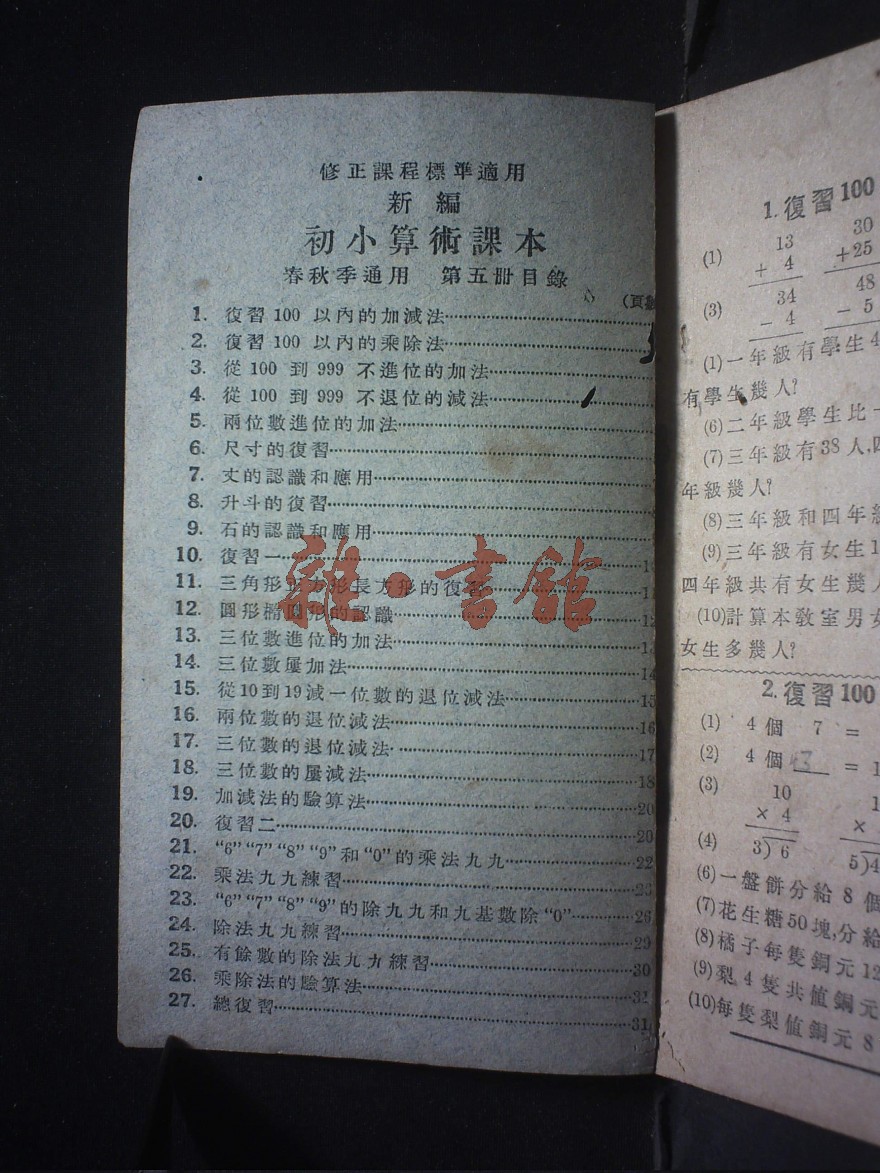 修正課程標準適用
新編
初小算術課本
春秋季通用 第五冊目錄
(頁數
1. 復習100 以內的加減法
2. 復習100 以內的乘除法
3. 從 100 到 999 不進位的加法
4. 從 100 到 999 不退位的減法
5. 兩位數進位的加法
6. 尺寸的復習
7. 丈的認識和應用
8. 升斗的復習
9. 石的認識和應用
10. 復習一
11. 三角形正方形長方形的復習 11
12. 圓形橢圓形的認識 12
13. 三位數進位的加法 13
14. 三位數屢加法 14
15. 從10到19減一位數的退位減法 15
16. 兩位數的退位減法 16
17. 三位數的退位減法 17
18. 三位數的屢減法 18
19. 加減法的驗算法 20
20. 復習二 20
21. “6”“7”“8”“9”和“0”的乘法九九 22
22. 乘法九九練習 23
23. “6”“7”“8”“9”的除九九和九基數除“0” 26
24. 除法九九練習 29
25. 有餘數的除法九九練習 30
26. 乘除法的驗算法 32
27. 總復習 31
雜·書館
1. 復習100
(1) 13 30
+ 4 +25
(3) 34 48
- 4 - 5
(1)一年級有學生4
有學生幾人?
(6)二年級學生比
(7)三年級有38人,四
年級幾人?
(8)三年級和四年級
(9)三年級有女生1
四年級共有女生幾人
(10)計算本教室男女
女生多幾人?
2. 復習100
(1) 4 個 7 =
(2) 4 個 = 1
(3) 10 1
× 4 ×
(4) 3)6 5)4
(6)一盤餅分給 8 個
(7)花生糖50塊,分給
(8)橘子每隻銅元12
(9)梨 4 隻共值銅元
(10)每隻梨值銅元 8